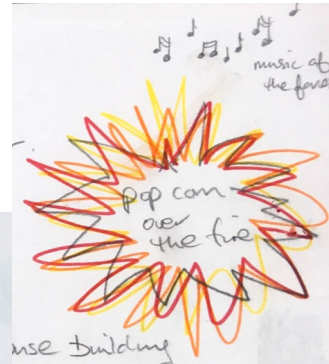 music of
the fore
pop corn
over
the fire
use building